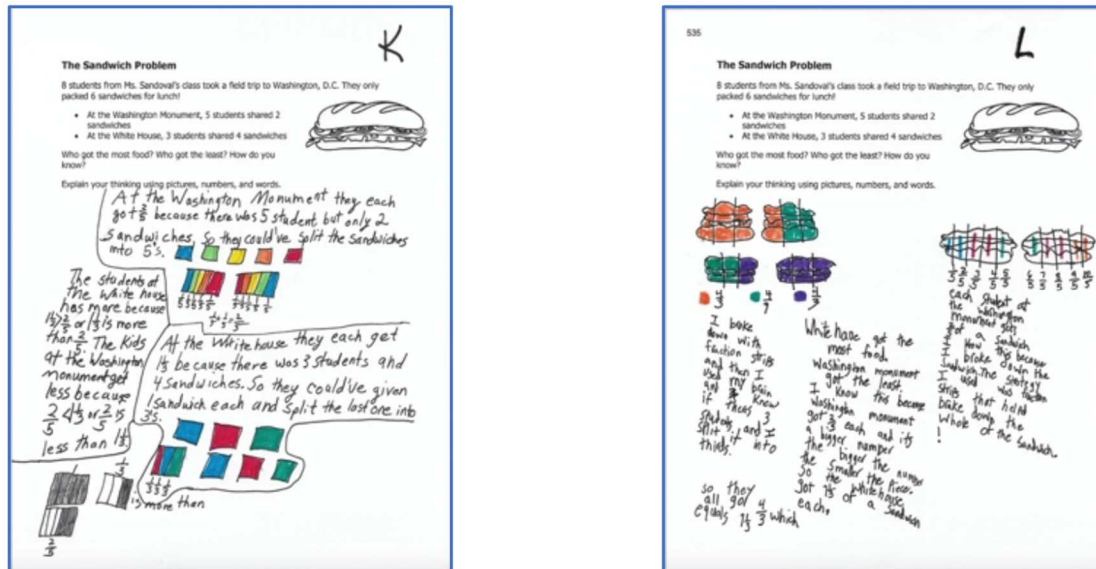 K
The Sandwich Problem
8 students from Ms. Sandoval's class took a field trip to Washington, D.C. They only
packed 6 sandwiches for lunch!
• At the Washington Monument, 5 students shared 2
sandwiches
• At the White House, 3 students shared 4 sandwiches
Who got the most food? Who got the least? How do you
know?
Explain your thinking using pictures, numbers, and words.
At the Washington Monument they each
got 2/5 because there was 5 student but only 2
sandwiches, so they could've split the sandwiches
into 5's.
1/5 1/5 1/5 1/5 1/5 1/5 1/5 1/5 1/5 1/5
1/5 + 1/5 = 2/5
The students at
the White house
has more because
1 1/3 > 2/5 or 1 1/3 is more
than 2/5. The Kids
at the Washington
monument get
less because
2/5 < 1 1/3 or 2/5 is
less than 1 1/3
At the White house they each get
1 1/3 because there was 3 students and
4 sandwiches. So they could've given
1 sandwich each and split the last one into
3's.
1/3 1/3 1/3
1/3
is more than
2/5
535
L
The Sandwich Problem
8 students from Ms. Sandoval's class took a field trip to Washington, D.C. They only
packed 6 sandwiches for lunch!
• At the Washington Monument, 5 students shared 2
sandwiches
• At the White House, 3 students shared 4 sandwiches
Who got the most food? Who got the least? How do you
know?
Explain your thinking using pictures, numbers, and words.
4/3
I brake
down with
fraction strips
and then I
used my brain
and I know
if theas 3
students and I
split it into
thirds.
so they
all got 4/3 which
equals 1 1/3
White house got the
most food
Washington monument
got the least.
I know this because
Washington monument
got each and its
a bigger number
the bigger the number
the smaller the piece.
So the White house
got 1 1/3 of a sandwich
each.
1/5 2/5 3/5 4/5 5/5 6/5 7/5 8/5 9/5 10/5
each student at
the washington
monument gets
a sandwich
I know this because
I broke down the
sandwich. The strategy
I used was fraction
strips that held
brake down the
whole of the sandwich.
!